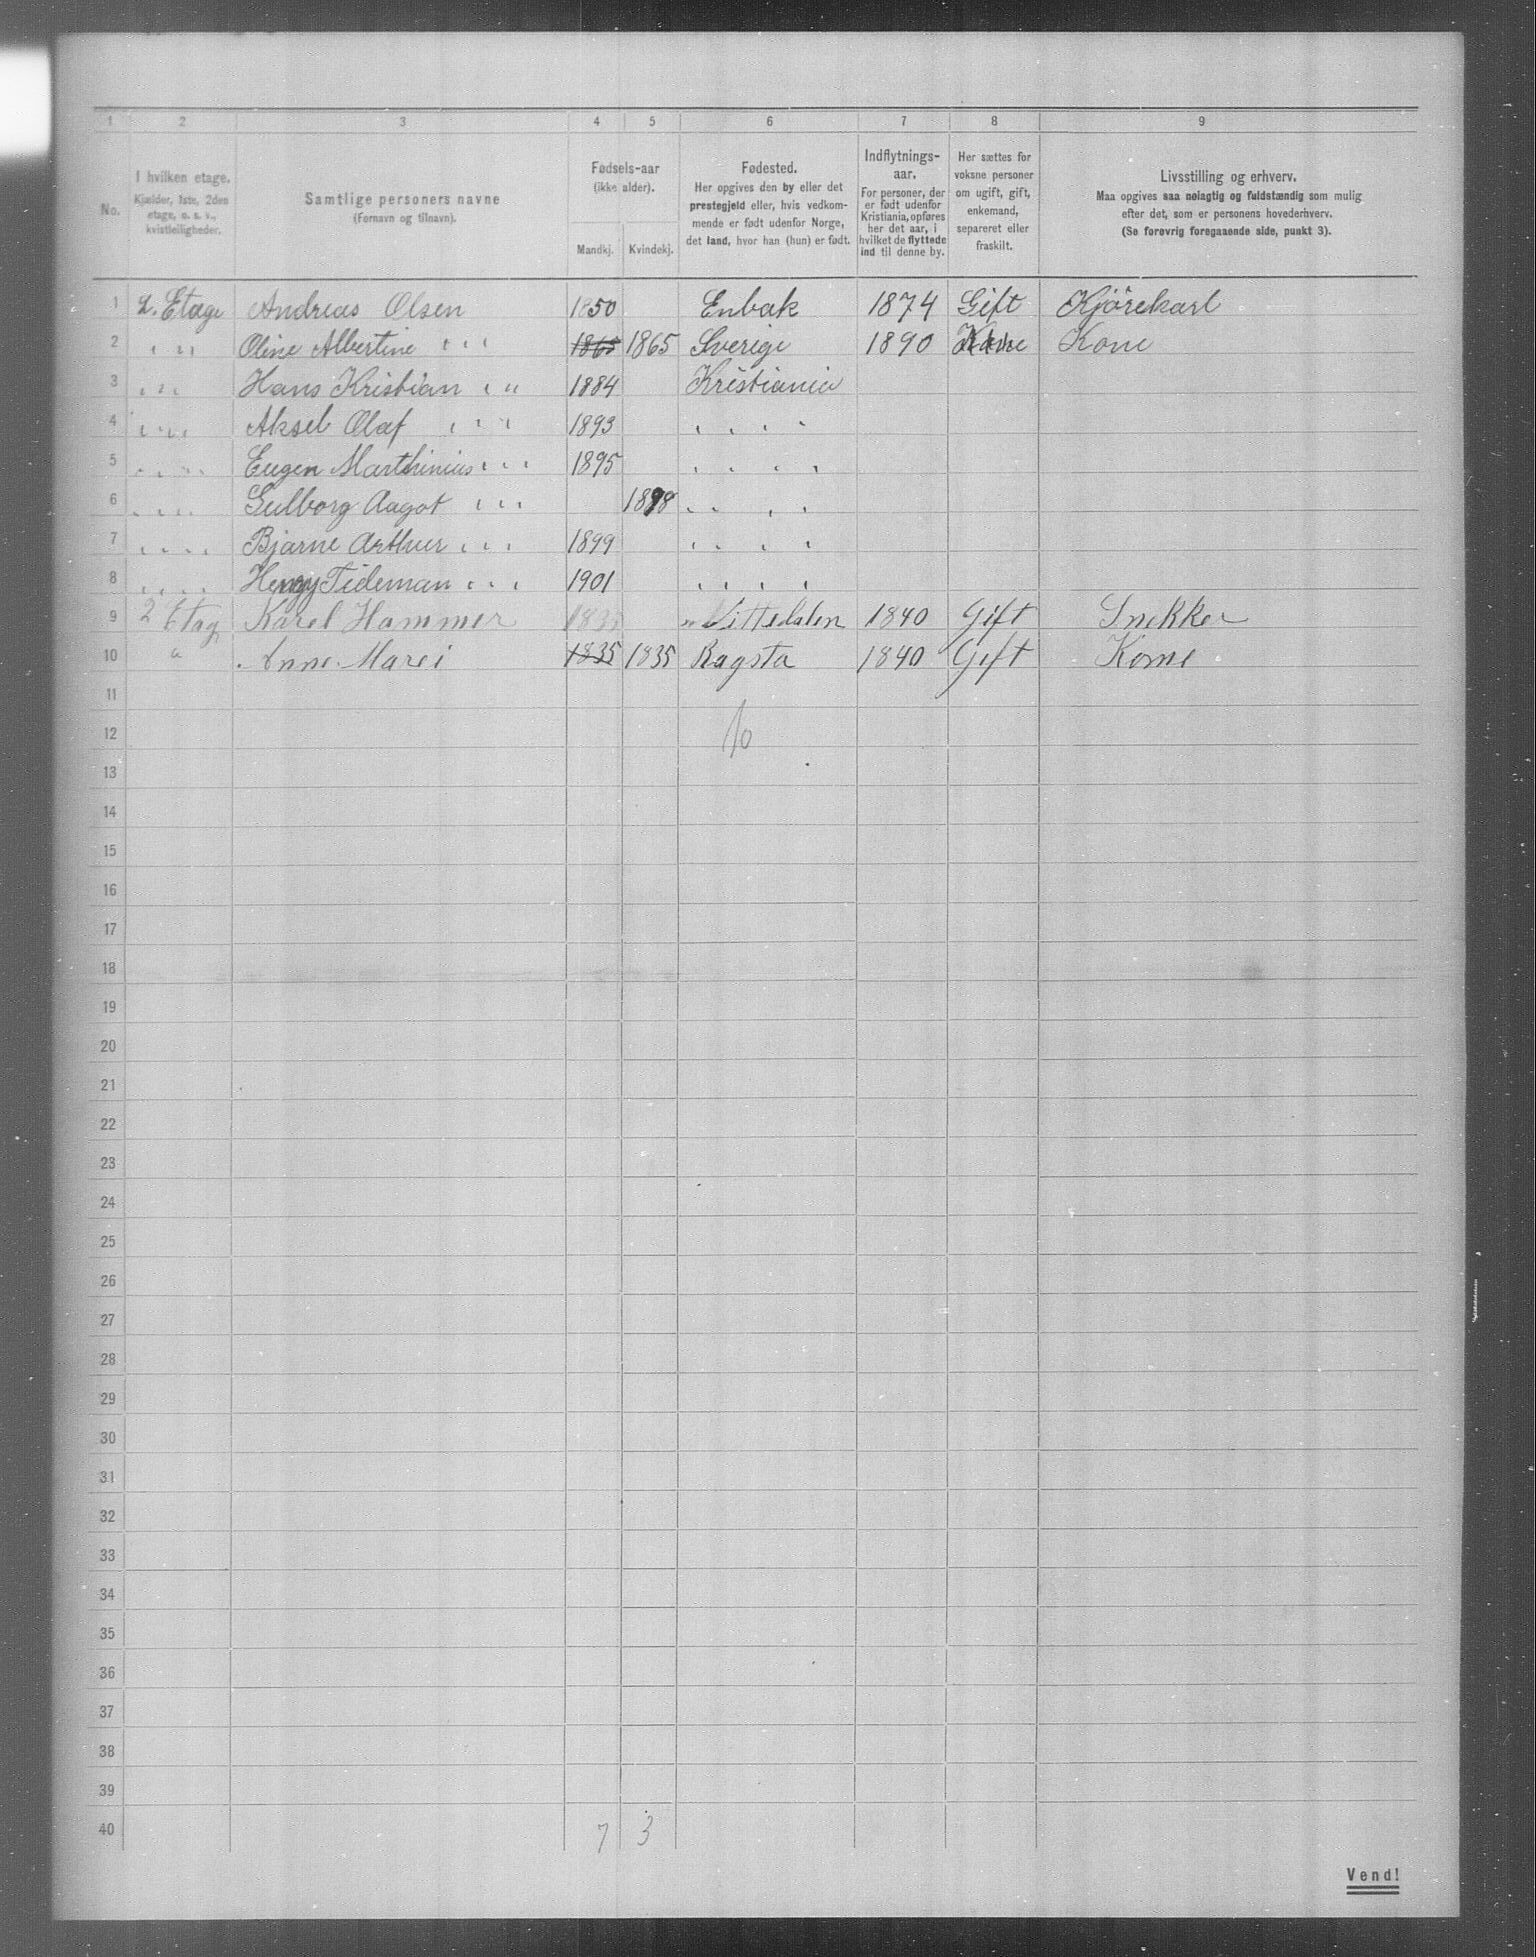 1 2 3 4 5 6 7 8 9
No.
I hvilken etage.
Kjælder, 1ste, 2den
etage, o. s. v.,
kvistleiligheder.
Samtlige personers navne
(Fornavn og tilnavn).
Fødsels-aar
(ikke alder).
Mandkj. Kvindekj.
Fødested.
Her opgives den by eller det
prestegjeld eller, hvis vedkom-
mende er født udenfor Norge,
det land, hvor han (hun) er født.
Indflytnings-
aar.
For personer, der
er født udenfor
Kristiania, opføres
her det aar, i
hvilket de flyttede
ind til denne by.
Her sættes for
voksne personer
om ugift, gift,
enkemand,
separeret eller
fraskilt.
Livsstilling og erhverv.
Maa opgives saa nøiagtig og fuldstændig som mulig
efter det, som er personens hovederhverv.
(Se forøvrig foregaaende side, punkt 3).
1 2. Etage Andreas Olsen 1850 Enbak 1874 Gift Kjörekarl
2 " " " Oline Albertine " " " 1865 1865 Sverige 1890 Kone
3 " " " Hans Kristian " " 1884 Kristiania
4 " " " " Aksel Olaf " " " 1893 " " " "
5 " " " " Eugen Marthinius " " " 1895 " " " "
6 " " " " Gulborg Aagot " " " 1898 " " " "
7 " " " " Bjarne Arthur " " " 1899 " " " "
8 " " " " Henry Tideman " " " 1901 " " " "
9 2 Etag Karel Hammer Nittedalen 1840 Gift Snekker
10 " Anne Marei 1835 1835 Ragsta 1840 Gift Kone
11
12 10
13
14
15
16
17
18
19
20
21
22
23
24
25
26
27
28
29
30
31
32
33
34
35
36
37
38
39
40 7 3
Vend!